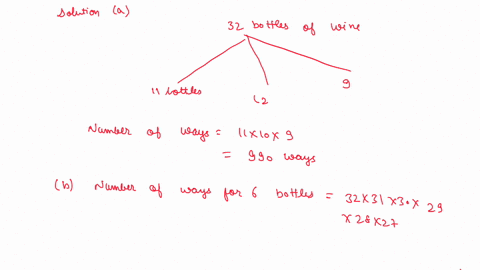 Solution (a)
32 bottles of wine
11 bottles
12
9
Number of ways = 11×10×9
= 990 ways
(b) Number of ways for 6 bottles = 32×31×30×29
×28×27